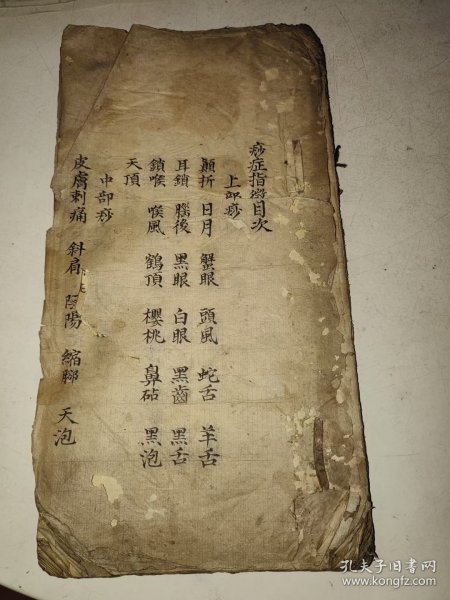 痧症指微目次
上部痧
顛折 日月 蟹眼 頭風 蛇舌 羊舌
耳鎖 腦後 黑眼 白眼 黑齒 黑舌
鎖喉 喉風 鶴頂 櫻桃 鼻砧 黑泡
天頂
中部痧
皮膚刺痛 斜肩 陰陽 縮腳 天泡
孔夫子旧书网
www.kongfz.com